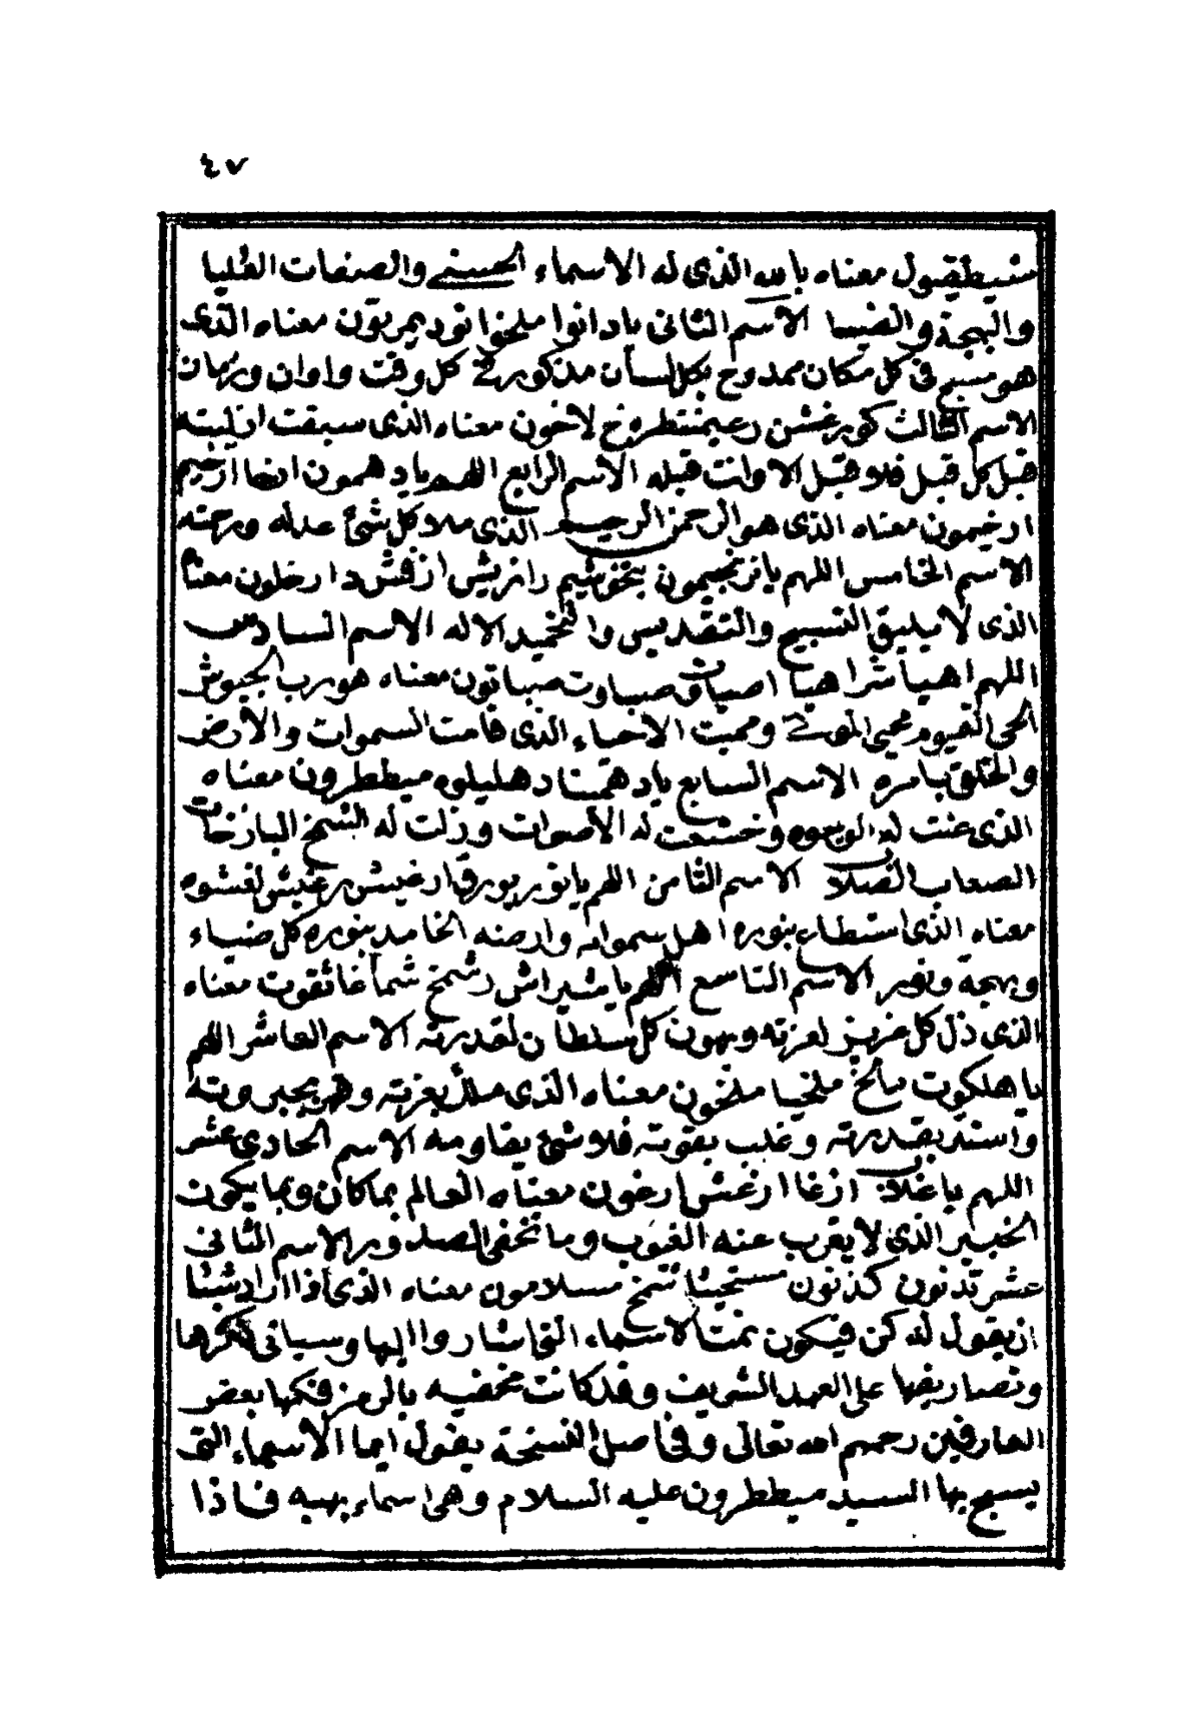 ٤٧
شيطيقول معناه يا لله الذى له الاسماء الحسنى والصفات العليا
والبهجة والضيا الاسم الثانى يا دانوا ملخوا نود يمربّون معناه الذى
هو مسبح فى كل مكان ممدوح بكل لسان مذكور فى كل وقت واوان وزمان
الاسم الثالث لاخون معناه الذى سبقت ازليته
قبل كل قبل فلا قبل الا وانت قبله الاسم الرابع اللهم يا دهمون ارخيم
ارخيمون معناه الذى هو الرحمن الرحيم الذى ملا كل شئ عدله ورحمته
الاسم الخامس اللهم دارخلون معناه
الذى لا يليق التسبيح والتقديس والتحميد الا له الاسم السادس
اللهم اهيا شراهيا اصباوت صباوت صباتون معناه هو رب الجيوش
الحى القيوم محيى الموتى ومميت الاحياء الذى قامت السموات والارض
والخلق بامره الاسم السابع يا دهمثا دهليلوه ميططرون معناه
الذى عنت له الوجوه وخشعت له الأصوات وذلت له الشمخ الباذخات
الصعاب الصلاب الاسم الثامن اللهم يا نور بورق ارغيش رغيش لغشوه
معناه الذى استضاء بنوره اهل سمواته وارضه الخامد بنوره كل ضياء
وبهجة ونور الاسم التاسع اللهم يا شيراش رشمخ شماغائقوت معناه
الذى ذل كل عزيز لعزته ويهون كل سلطان لقدرته الاسم العاشر اللهم
يا هلكوت مالخ ملخيا ملخون معناه الذى ملأ بعزته وقهر بجبروته
واستد بقدرته وغلب بقوته فلا شئ يقاومه الاسم الحادى عشر
اللهم يا غلاب ازغا ارغش ارخون معناه العالم بما كان وبما يكون
الخبير الذى لا يغرب عنه الغيوب وما تخفى الصدور الاسم الثانى
عشر تدنون كذنون مستحيثا تتمخ مسلامون معناه الذى اذا اراد شيئا
ان يقول له كن فيكون تمت الاسماء التى اشاروا اليها وسياتى ذكرها
وتصاريفها على العهد الشريف وقد كانت مخفيه بالرمز فكها بعض
العارفين رحمهم الله تعالى وفى اصل النسخة يقول ايما الاسماء التى
يسبح بها السيد ميططرون عليه السلام وهى اسماء بهيه فاذا